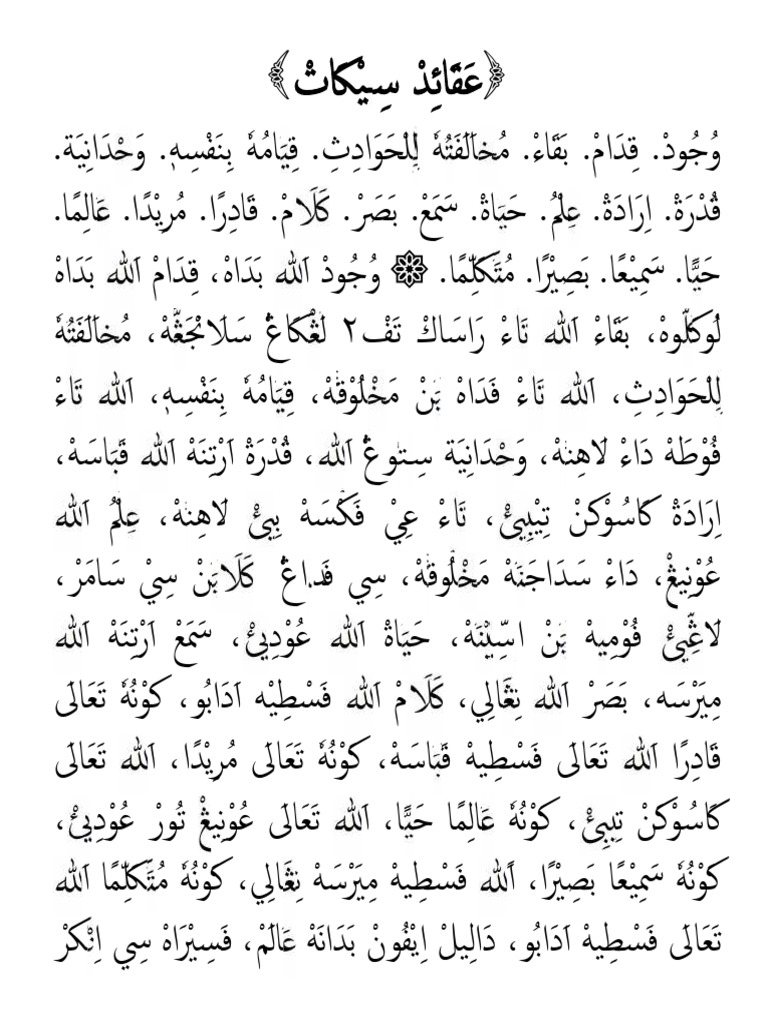 ﴿عَقَائِدْ سِيْكَاتْ﴾
وُجُودْ. قِدَامْ. بَقَاءْ. مُخَالَفَتُهٗ لِلْحَوَادِثِ. قِيَامُهٗ بِنَفْسِهٖ. وَحْدَانِيَة.
قُدْرَةْ. اِرَادَةْ. عِلْمُ. حَيَاةْ. سَمَعْ. بَصَرْ. كَلَامْ. قَادِرًا. مُرِيْدًا. عَالِمًا.
حَيًّا. سَمِيْعًا. بَصِيْرًا. مُتَكَلِّمًا. ۞ وُجُودْ اَللّٰه بَدَاهْ، قِدَامْ اَللّٰه بَدَاهْ
لُوكَلُّوهْ، بَقَاءْ اَللّٰه تَاءْ رَاسَاكْ تَفْ٢ لَڠْكَاڠْ سَلَانْجَڠَّهْ، مُخَالَفَتُهٗ
لِلْحَوَادِثِ، اَللّٰه تَاءْ فَدَاهْ بَنْ مَخْلُوْقَهْ، قِيَامُهٗ بِنَفْسِهٖ، اَللّٰه تَاءْ
فُوْطَهْ دَاءْ لَاهِنَهْ، وَحْدَانِيَة سِتوڠْ اَللّٰه، قُدْرَةْ اَرْتِنَهْ اَللّٰه قَبَاسَهْ،
اِرَادَةْ كَاسُوْكَنْ تِيْبِيْئْ، تَاءْ عِيْ فَكْسَهْ بِيْئْ لَاهِنَهْ، عِلْمُ اَللّٰه
عُوْنِيڠْ، دَاءْ سَدَاجَنَهْ مَخْلُوقَهْ، سِي فَداڠْ كَلَابَنْ سِيْ سَامَرْ،
لَاڠِّيْئْ فُوْمِيهْ بَنْ اسِّيْنَهْ، حَيَاةْ اَللّٰه عُوْدِيْئْ، سَمَعْ اَرْتِنَهْ اَللّٰه
مِيَرْسَه، بَصَرْ اَللّٰه نِڠَالِي، كَلَامْ اَللّٰه فَسْطِيْه اَدَابُو، كَوْنُهٗ تَعَالَى
قَادِرًا اَللّٰه تَعَالَى فَسْطِيهْ قَبَاسَهْ، كَوْنُهٗ تَعَالَى مُرِيْدًا، اَللّٰه تَعَالَى
كَاسُوْكَنْ تِبِيْئْ، كَوْنُهٗ عَالِمًا حَيًّا، اَللّٰه تَعَالَى عُوْنِيڠْ تُورْ عُوْدِيْئْ،
كَوْنُهٗ سَمِيْعًا بَصِيْرًا، اَللّٰه فَسْطِيهْ مِيَرْسَهْ نِڠَالِي، كَوْنُهٗ مُتَكَلِّمًا اَللّٰه
تَعَالَى فَسْطِيهْ اَدَابُو، دَالِيلْ اِيْفُونْ بَدَانَهْ عَالَمْ، فَسِيْرَاهْ سِي اِنْكَرْ